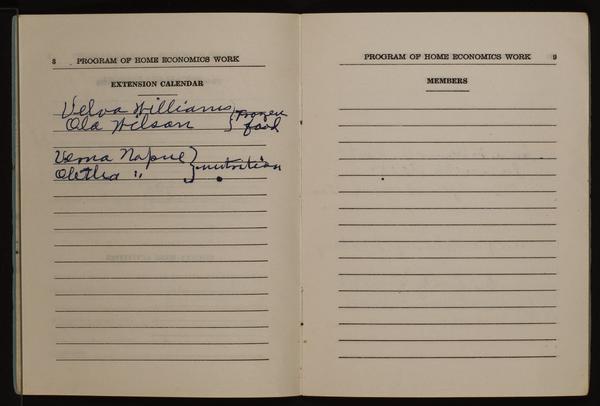 8 PROGRAM OF HOME ECONOMICS WORK
EXTENSION CALENDAR
Velva Williams } Frozen
Ola Wilson } food
Verna Napue }
Oletha " } nutrition
PROGRAM OF HOME ECONOMICS WORK 9
MEMBERS